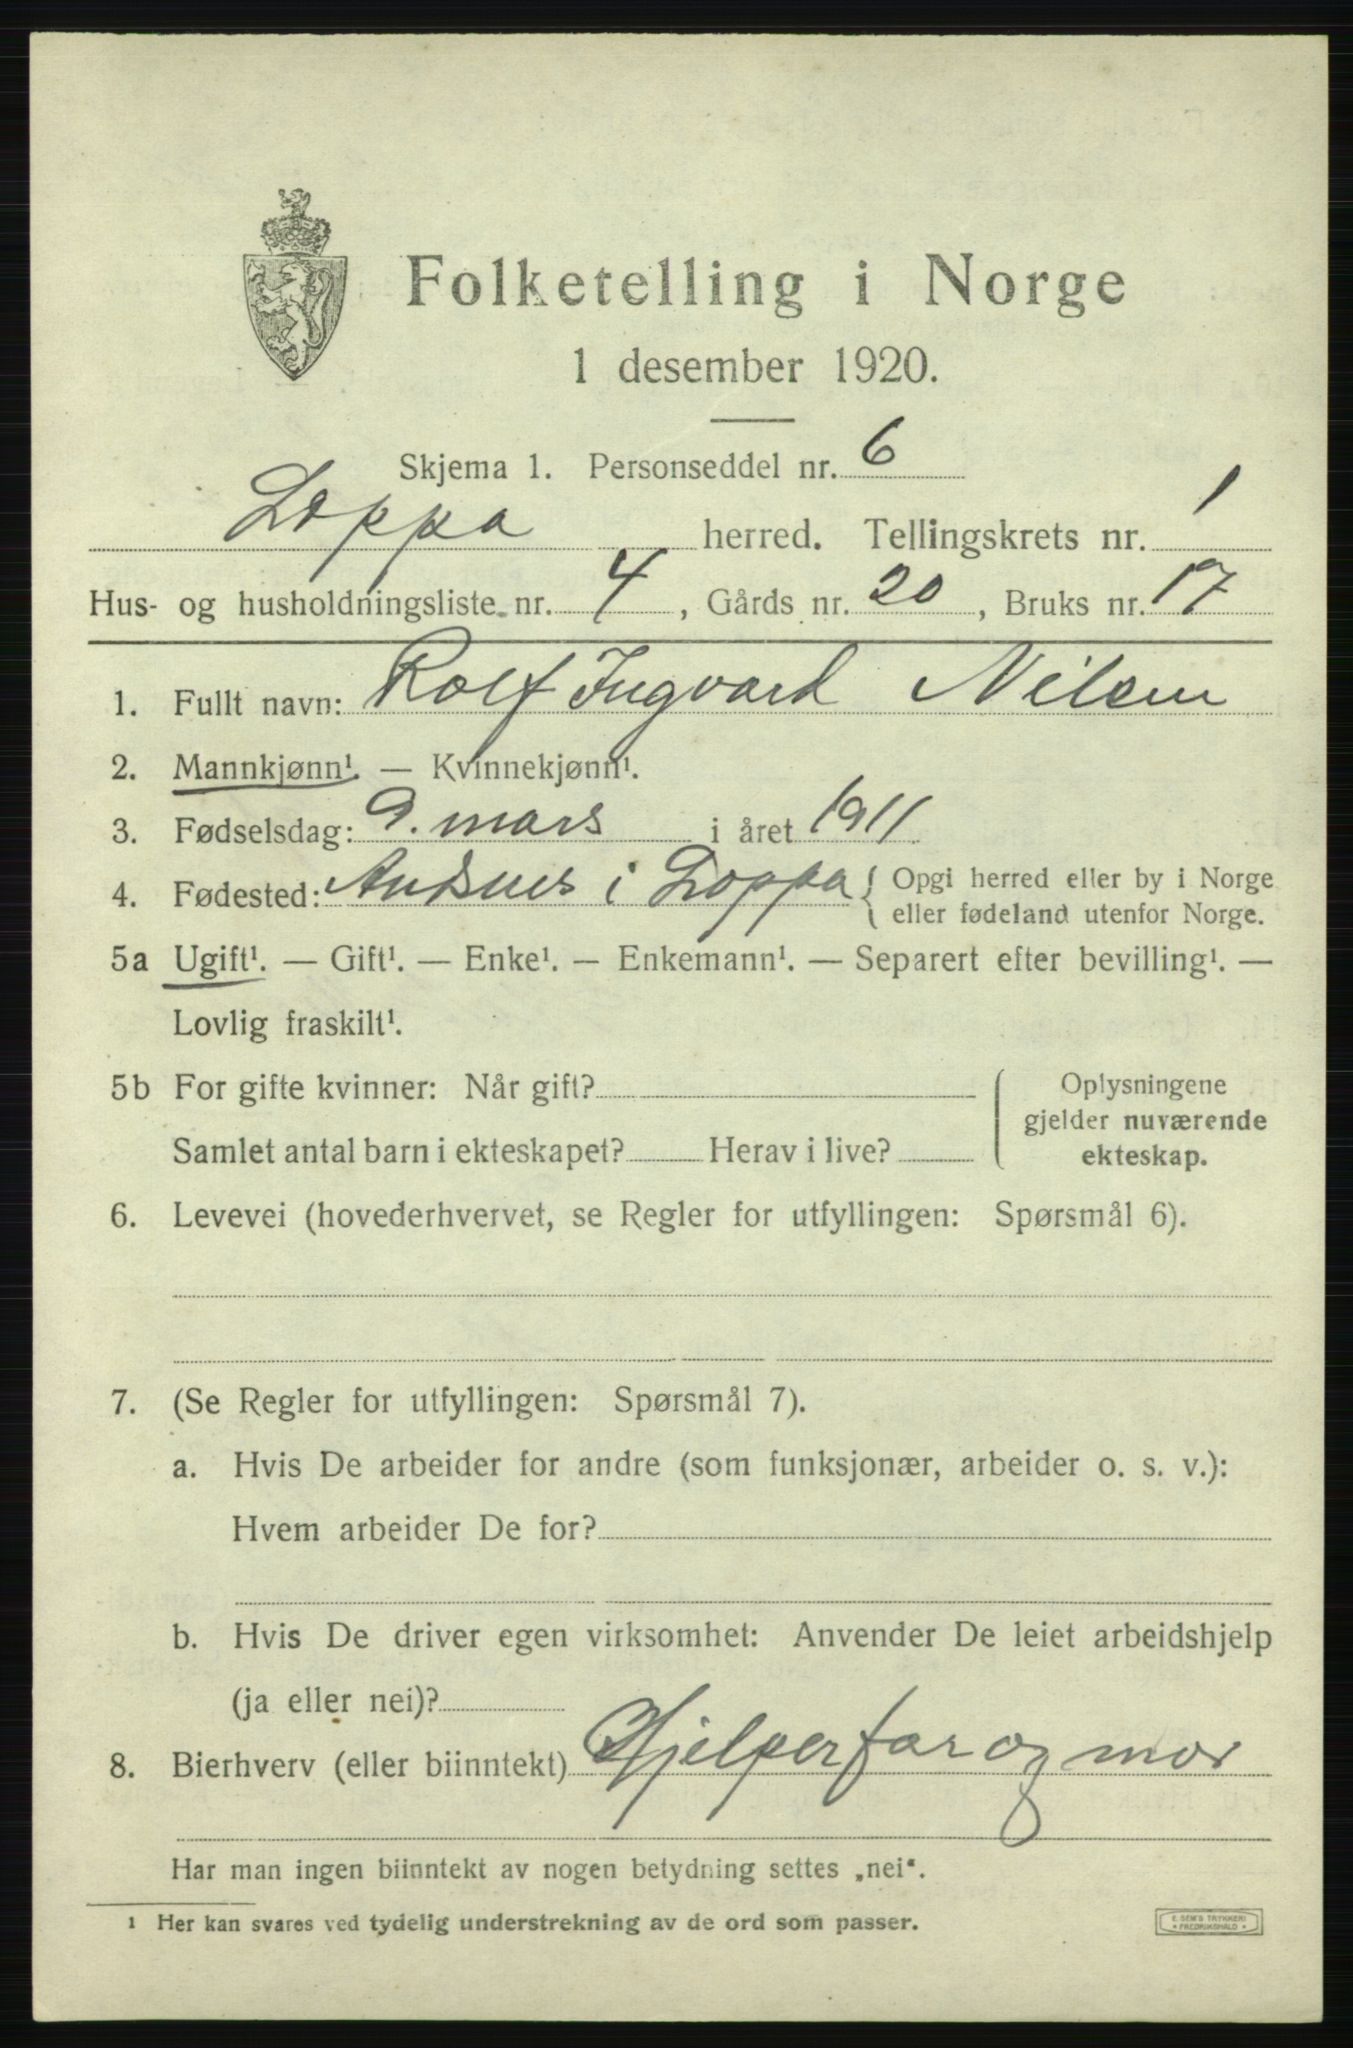 Folketelling i Norge
1 desember 1920.
Skjema 1. Personseddel nr. 6
Loppa herred. Tellingskrets nr. 1
Hus- og husholdningsliste nr. 4, Gårds nr. 20, Bruks nr. 17
1. Fullt navn: Rolf Ingvard Nilsen
2. Mannkjønn¹. — Kvinnekjønn¹.
3. Fødselsdag: 9. mars i året 1911.
4. Fødested: Andsnes i Loppa { Opgi herred eller by i Norge
eller fødeland utenfor Norge.
5a Ugift¹. — Gift¹. — Enke¹. — Enkemann¹. — Separert efter bevilling¹. —
Lovlig fraskilt¹.
5b For gifte kvinner: Når gift?
Samlet antal barn i ekteskapet? Herav i live?
Oplysningene
gjelder nuværende
ekteskap.
6. Levevei (hovederhvervet, se Regler for utfyllingen: Spørsmål 6).
7. (Se Regler for utfyllingen: Spørsmål 7).
a. Hvis De arbeider for andre (som funksjonær, arbeider o. s. v.):
Hvem arbeider De for?
b. Hvis De driver egen virksomhet: Anvender De leiet arbeidshjelp
(ja eller nei)?
8. Bierhverv (eller biinntekt) Hjelper far og mor
Har man ingen biinntekt av nogen betydning settes „nei“.
¹ Her kan svares ved tydelig understrekning av de ord som passer.
E. SEM'S TRYKKERI
* FREDRIKSHALD *